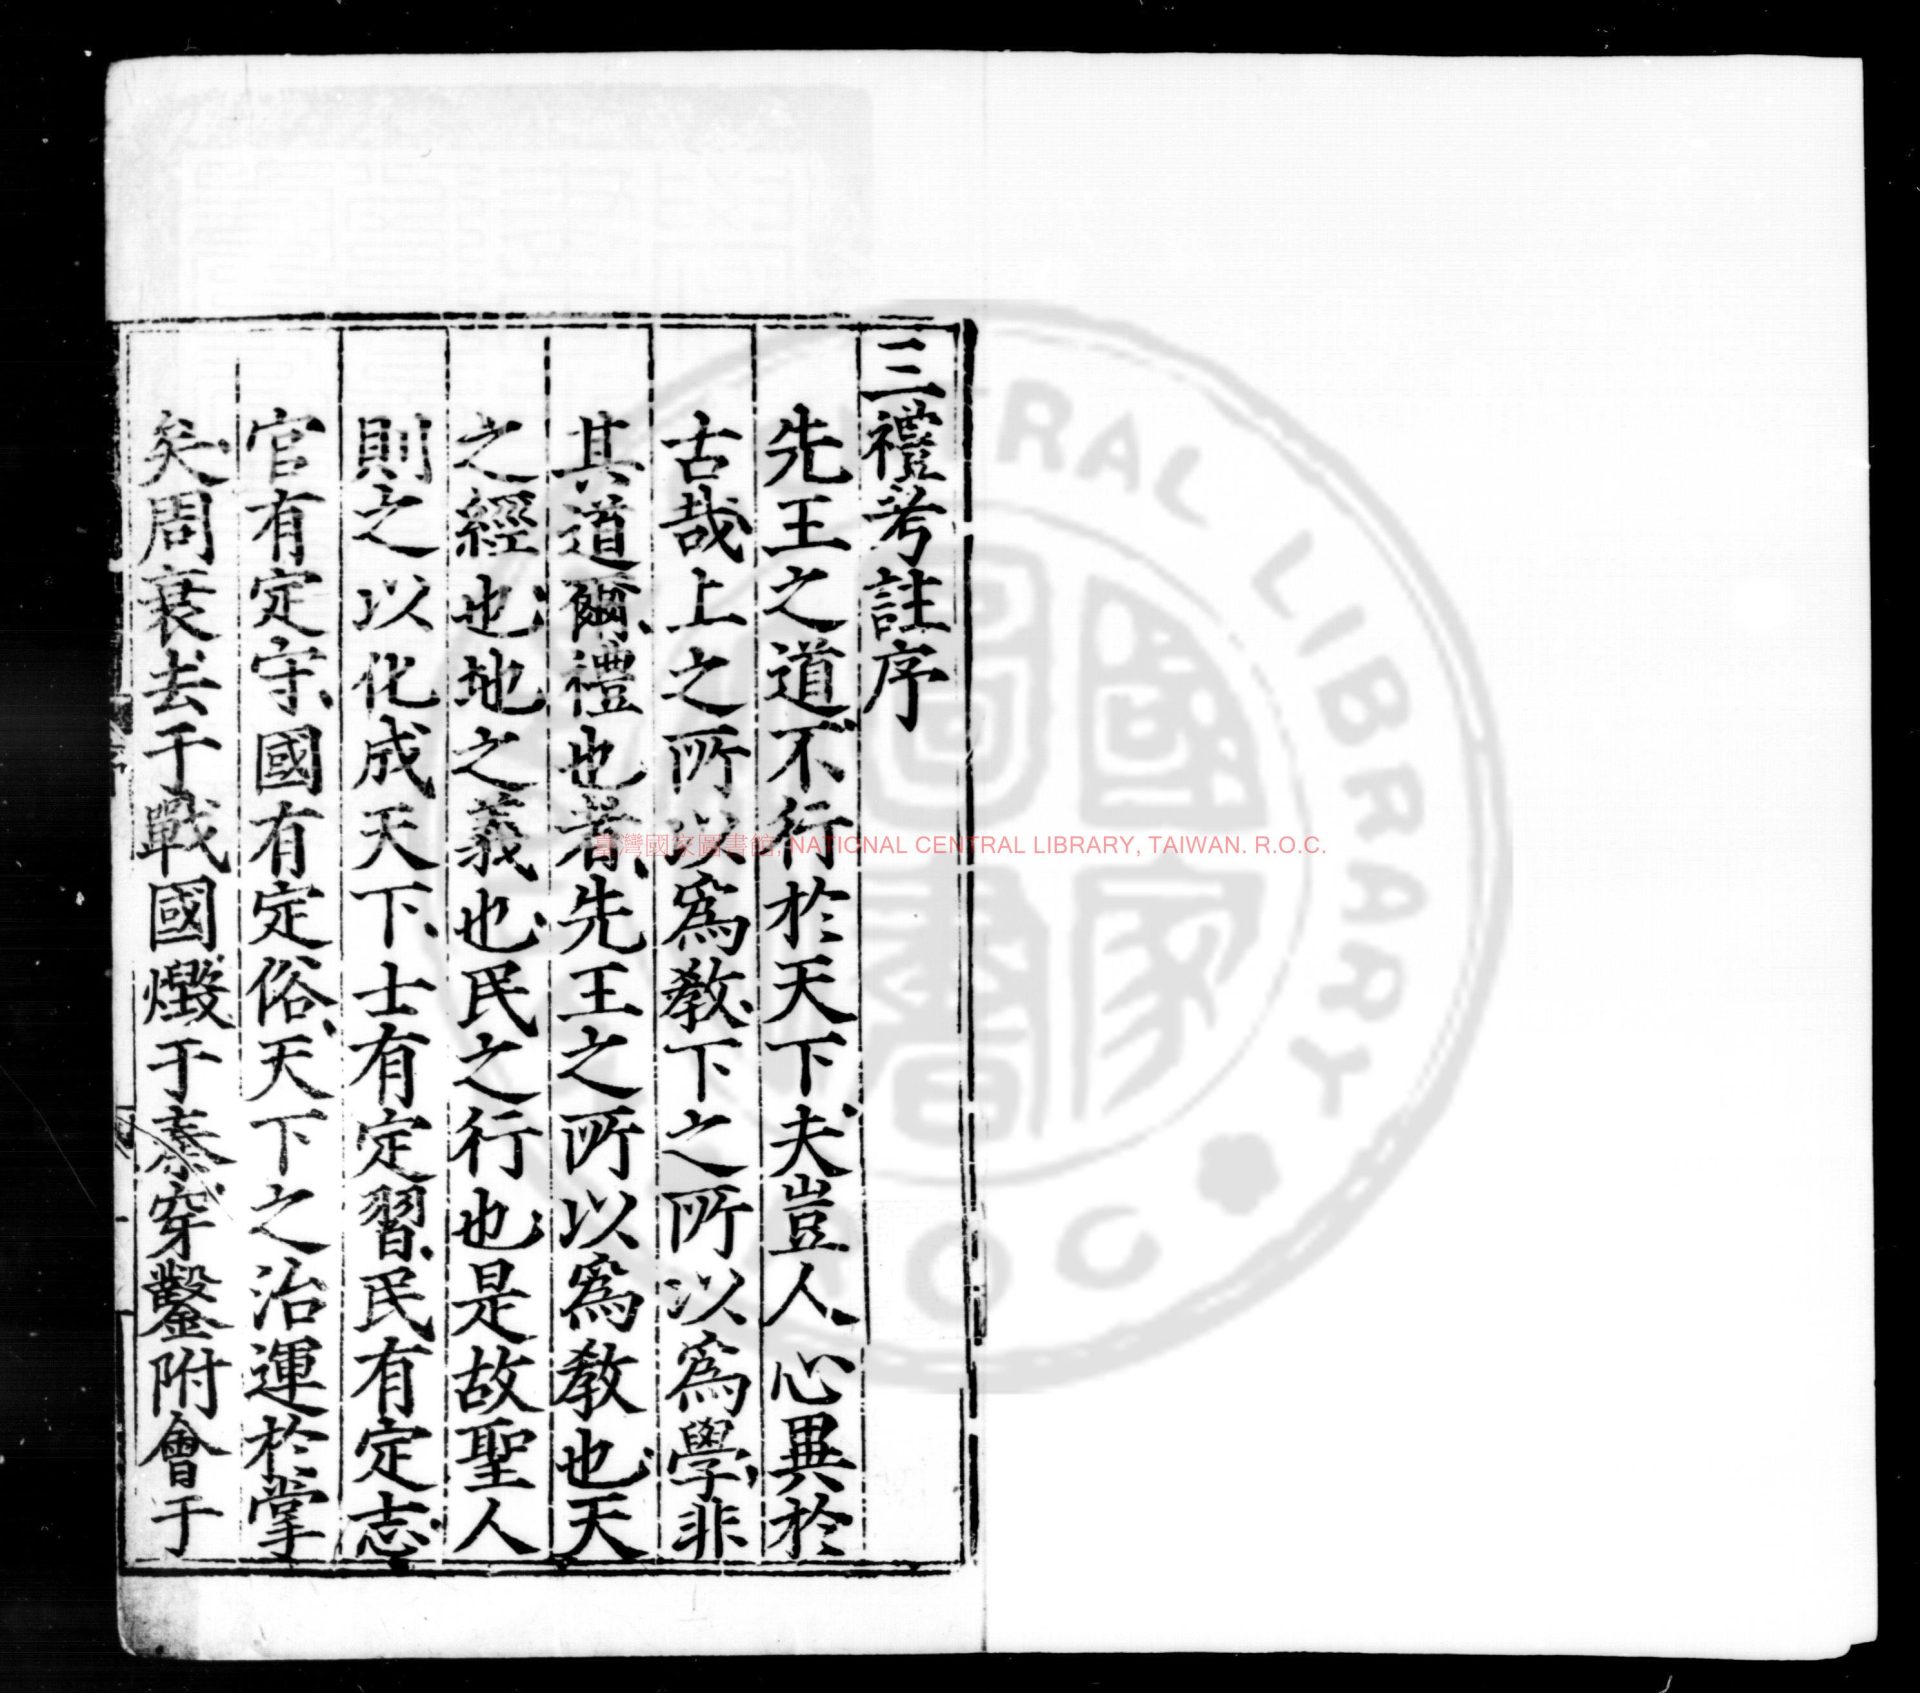 三禮考註序
先王之道不行於天下夫豈人心異於
古哉上之所以爲教下之所以爲學非
其道爾禮也者先王之所以爲教也天
之經也地之義也民之行也是故聖人
則之以化成天下士有定習民有定志
官有定守國有定俗天下之治運於掌
矣周衰去于戰國燬于秦穿鑿附會于
臺灣國家圖書館, NATIONAL CENTRAL LIBRARY, TAIWAN. R.O.C.
CENTRAL LIBRARY
R.O.C
國家圖書